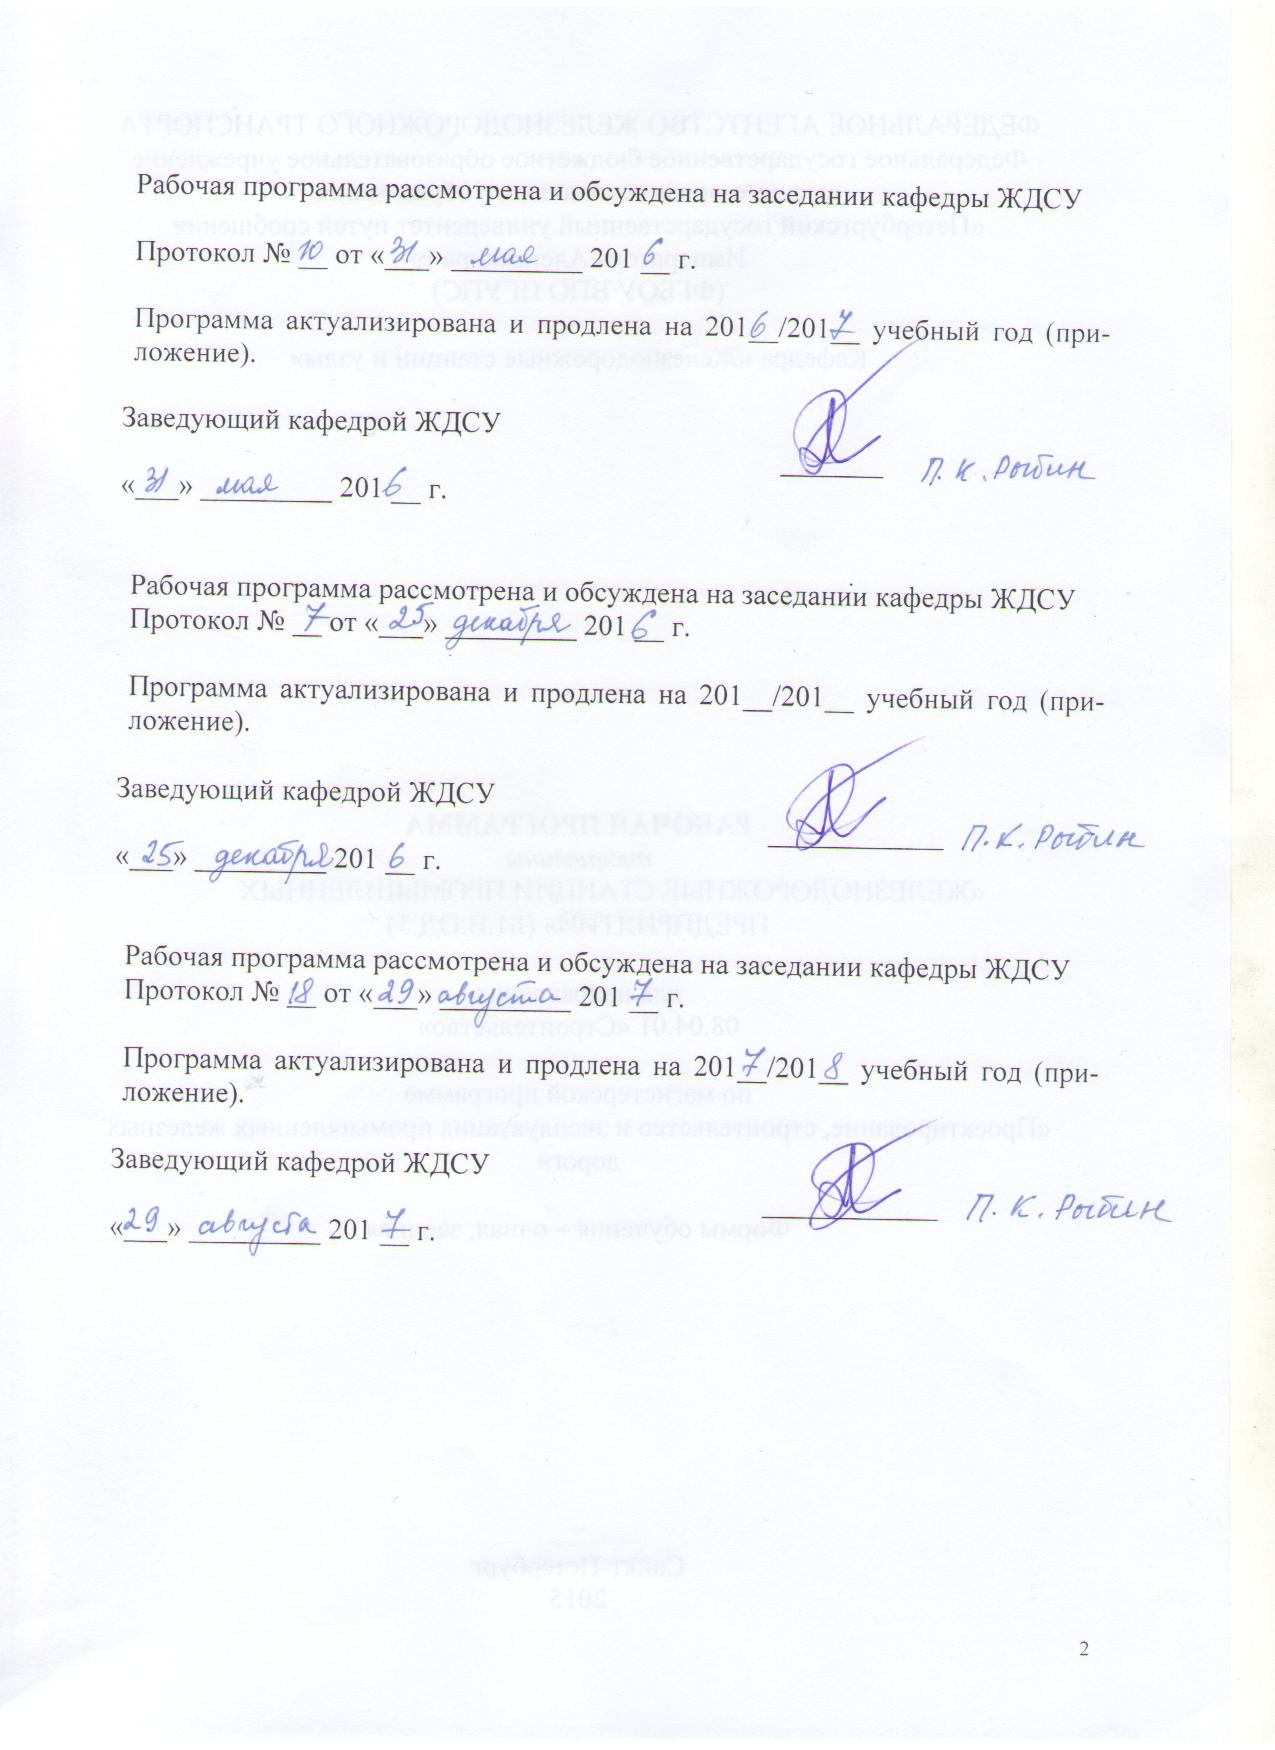 Рабочая программа рассмотрена и обсуждена на заседании кафедры ЖДСУ
Протокол № 10 от «31» мая 2016 г.
Программа актуализирована и продлена на 2016/2017 учебный год (при-
ложение).
Заведующий кафедрой ЖДСУ
П. К. Рыбин
«31» мая 2016 г.
Рабочая программа рассмотрена и обсуждена на заседании кафедры ЖДСУ
Протокол № 7 от «25» декабря 2016 г.
Программа актуализирована и продлена на 201__/201__ учебный год (при-
ложение).
Заведующий кафедрой ЖДСУ
П. К. Рыбин
«25» декабря 2016 г.
Рабочая программа рассмотрена и обсуждена на заседании кафедры ЖДСУ
Протокол № 18 от «29» августа 2017 г.
Программа актуализирована и продлена на 2017/2018 учебный год (при-
ложение).
Заведующий кафедрой ЖДСУ
П. К. Рыбин
«29» августа 2017 г.
2